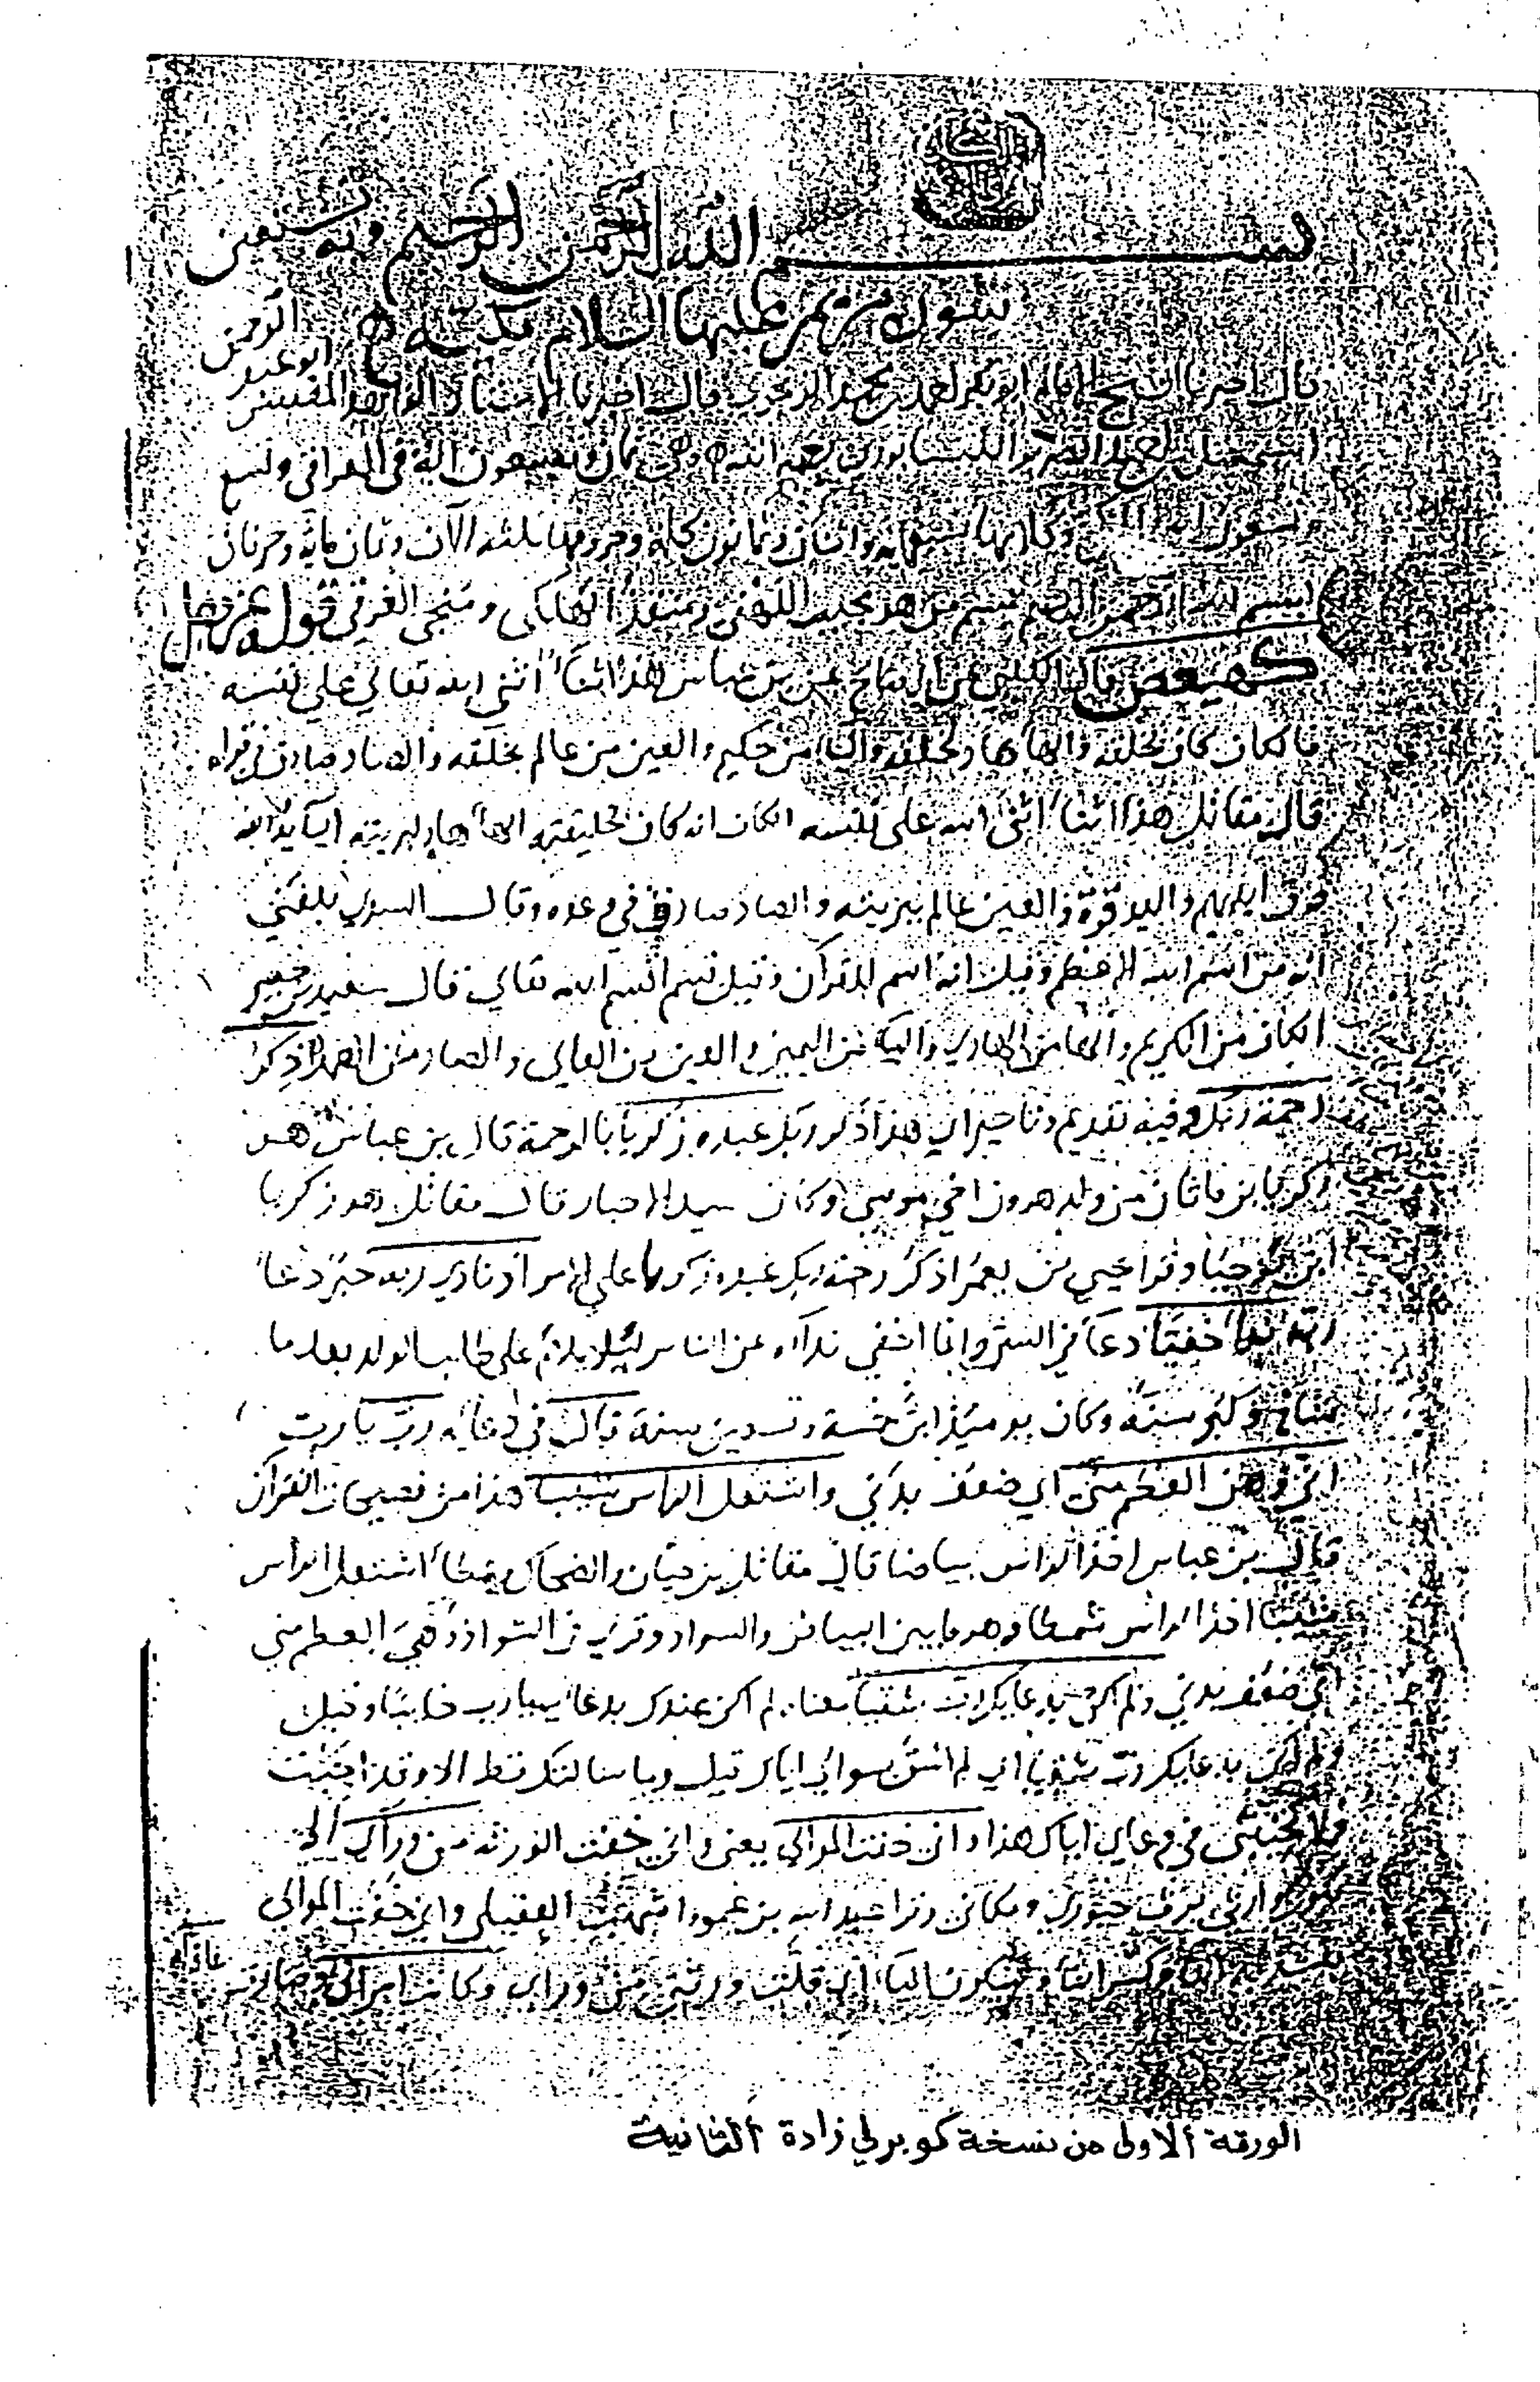 بســـم الله الرحمن الرحيم وبه نستعين
سورة مريم عليها السلام مكية
الرحمن
ابو عبد
قال اخبرنا الشيخ الامام ابو بكر احمد بن محمد قال اخبرنا الاستاذ المفسر
اسمعيل بن احمد الضرير النيسابوري رحمه الله وهي ثمان وتسعون اية في العراقي وتسع
وتسعون اية وكلامها تسعمايه واثنان وثمانون كلمه وحروفها ثلثه الآف وثمان مايه وحرفان
بسم الله الرحمن الرحيم بسم من هو مجيب اللهفى ومنقذ الهلكى ومنجي الغرقى قوله عز وجل
كهيعص قال الكلبي عن ابي صالح عن بن عباس هذا ثناء اثنى الله تعالي علي نفسه
فالكاف كاف لخلقه والهاء هاد لخلقه والياء من حكيم والعين من عالم بخلقه والصاد صادق
قال مقاتل هذا اثناء اثنى الله على نفسه الكاف انه كاف لخليقته الهاء هاد لبريته الياء يد الله
فوق ايديهم واليد قوة والعين عالم ببريته والصاد صادق في وعده وقال السدي بلغني
انه من اسم الله الاعظم وقيل انه اسم للقرآن وقيل قسم اقسم الله تعالي قال سعيد بن جبير
الكاف من الكريم والهاء من الهادي والياء من اليمين والعين من العالي والصاد من الصمد ذكر
رحمة ربك وفيه تقديم وتاخير اي هذا ذكر ربك عبده زكريا بالرحمة قال بن عباس هو
زكريا بن ماثان من ولد هرون اخي موسى وكان سيد الاحبار قال مقاتل هو زكريا
ابن يوحيا وقرا يحيي بن يعمر اذكر رحمة ربك عبده زكريا علي الامر اذ نادي ربه حين دعا
ربه نداء خفيا دعا في السر وانما اخفي نداه عن الناس ليلا يلام على طلب الولد بعد ما
شاخ وكبر سنه وكان يوميذ ابن خمسة وتسعين سنة قال في دعايه رب يا رب
اني وهن العظم مني اي ضعف بدني واشتعل الراس شيبا هذا من فصيحات القرآن
قال بن عباس اخذ الراس بياضا قال مقاتل بن حيان والضحاك وعطاء اشتعل الراس
شيبا اخذ الراس شمطا وهو ما بين البياض والسواد وقري في الشواذ وهي العظم مني
اي ضعف بدني ولم اكن بدعايك رب شقيا معناه لم اكن عندك بدعاءي يا رب خايبا وقيل
ولم اكن بدعايك رب شقيا اي لم اشق بسوالي اياك قيل وما سالتك قط الا وقد اجبت
فلا تخيبني في دعاي اياك هذا واني خفت الموالي يعني واني خفت الورثه من وراي الا
وارثي يرث حبورتي ومكاني وقرا عبد الله بن عمرو العقيلي واني خفت الموالي
بتشديد الفاء وكسر التاء وسكون الياء اي قلت ورثتي من وراي وكانت امراتي
عاقرا
الورقة الاولى من نسخة كوبرلي زادة الثانية